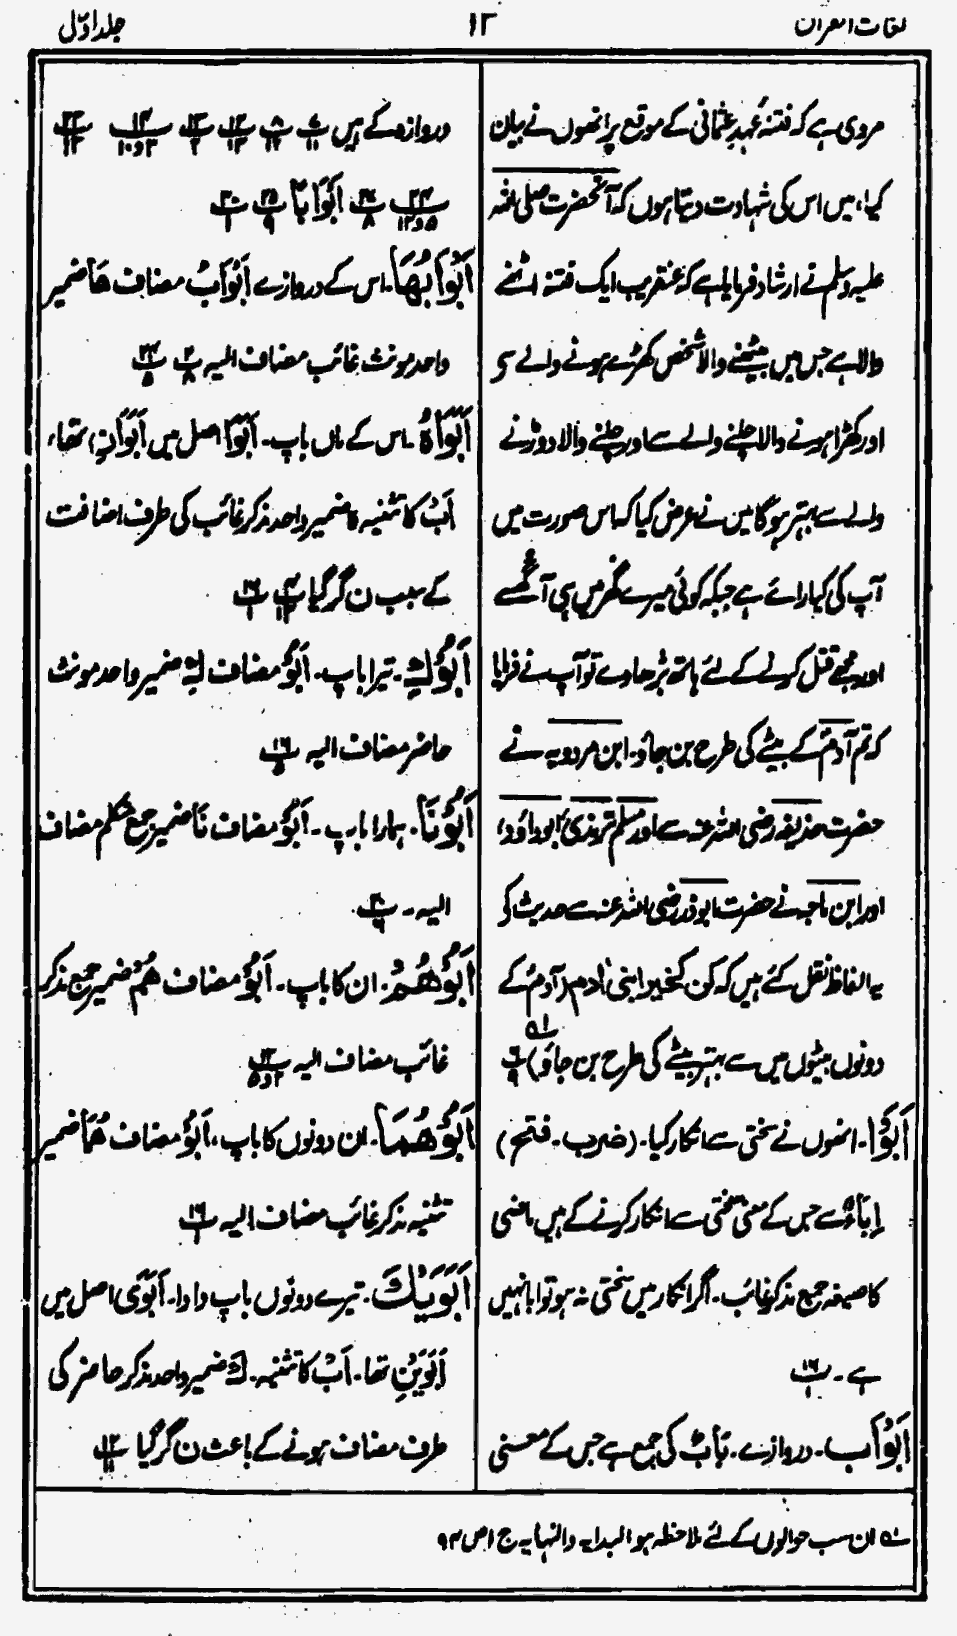 لغات القرآن
۱۲
جلد اوّل
مروی ہے کہ فتنۂ عہدِ عثمانی کے موقع پر انھوں نے بیان
کیا، میں اس کی شہادت دیتا ہوں کہ آنحضرت صلی اللہ
علیہ وسلم نے ارشاد فرمایا ہے کہ عنقریب ایک فتنہ اٹھنے
والا ہے جس میں بیٹھنے والا شخص کھڑے ہونے والے سے
اور کھڑا ہونے والا چلنے والے سے اور چلنے والا دوڑنے
والے سے بہتر ہوگا میں نے عرض کیا کہ اس صورت میں
آپ کی کیا رائے ہے جبکہ کوئی میرے گھر میں ہی آ گھسے
اور مجھے قتل کرنے کے لئے ہاتھ بڑھادے تو آپ نے فرمایا
کہ تم آدمؑ کے بیٹے کی طرح بن جاؤ۔ ابن مردویہ نے
حضرت حذیفہ رضی اللہ عنہ سے اور مسلم، ترمذی، ابوداؤد،
اور ابن ماجہ نے حضرت ابوذر رضی اللہ عنہ سے حدیث کی
یہ الفاظ نقل کئے ہیں کہ کن کخیر ابنی اٰدم (آدمؑ کے
دونوں بیٹوں میں سے بہتر بیٹے کی طرح بن جاؤ) ؎۱ پ ۶ ۹
اَبَوْا۔ انھوں نے سختی سے انکار کیا۔ (ضرب۔ فتح)
اِبَاءٌ سے جس کے معنی سختی سے انکار کرنے کے ہیں ماضی
کا صیغہ جمع مذکر غائب۔ اگر انکار میں سختی نہ ہو تو اِبا نہیں
ہے۔ پ ۱۶ ۱
اَبْوَاب۔ دروازے۔ بَابٌ کی جمع ہے جس کے معنی
دروازہ کے ہیں
اَبْوَابًا
اَبْوَابُهَا۔ اس کے دروازے اَبْوَابُ مضاف هَا ضمیر
واحد مونث غائب مضاف الیہ
اَبَوَاهُ۔ اس کے ماں باپ۔ اَبَوَا اصل میں اَبَوَانِ تھا،
اَبٌ کا تثنیہ ہ ضمیر واحد مذکر غائب کی طرف اضافت
کے سبب ن گر گیا
اَبُوْكِ۔ تیرا باپ۔ اَبُوْ مضاف كِ ضمیر واحد مونث
حاضر مضاف الیہ
اَبُوْنَا۔ ہمارا باپ۔ اَبُوْ مضاف نَا ضمیر جمع متکلم مضاف
الیہ۔
اَبُوْهُمْ۔ ان کا باپ۔ اَبُوْ مضاف هُمْ ضمیر جمع مذکر
غائب مضاف الیہ
اَبُوْهُمَا۔ ان دونوں کا باپ، اَبُوْ مضاف هُمَا ضمیر
تثنیہ مذکر غائب مضاف الیہ
اَبَوَيْكَ۔ تیرے دونوں باپ دادا۔ اَبَوَى اصل میں
اَبَوَيْنِ تھا۔ اَبٌ کا تثنیہ۔ كَ ضمیر واحد مذکر حاضر کی
طرف مضاف ہونے کے باعث ن گر گیا
؎۱ ان سب حوالوں کے لئے ملاحظہ ہو البدایہ والنہایہ ج ۱ ص ۹۴